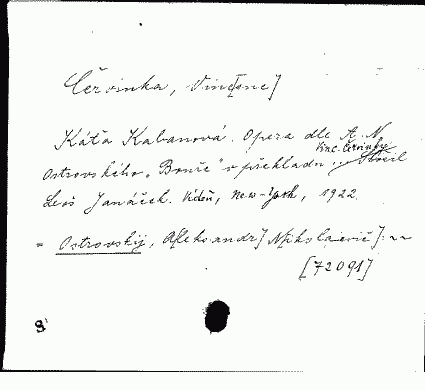 Červinka, Vinc[enc]
Káťa Kabanová. Opera dle A. N.
Vinc. Červinky
Ostrovského „Bouře" v překladu ... složil
Leoš Janáček. Vídeň, New-York, 1922.
= Ostrovskij, A[leksandr] N[ikolajevič]. ~~
[72091]
8